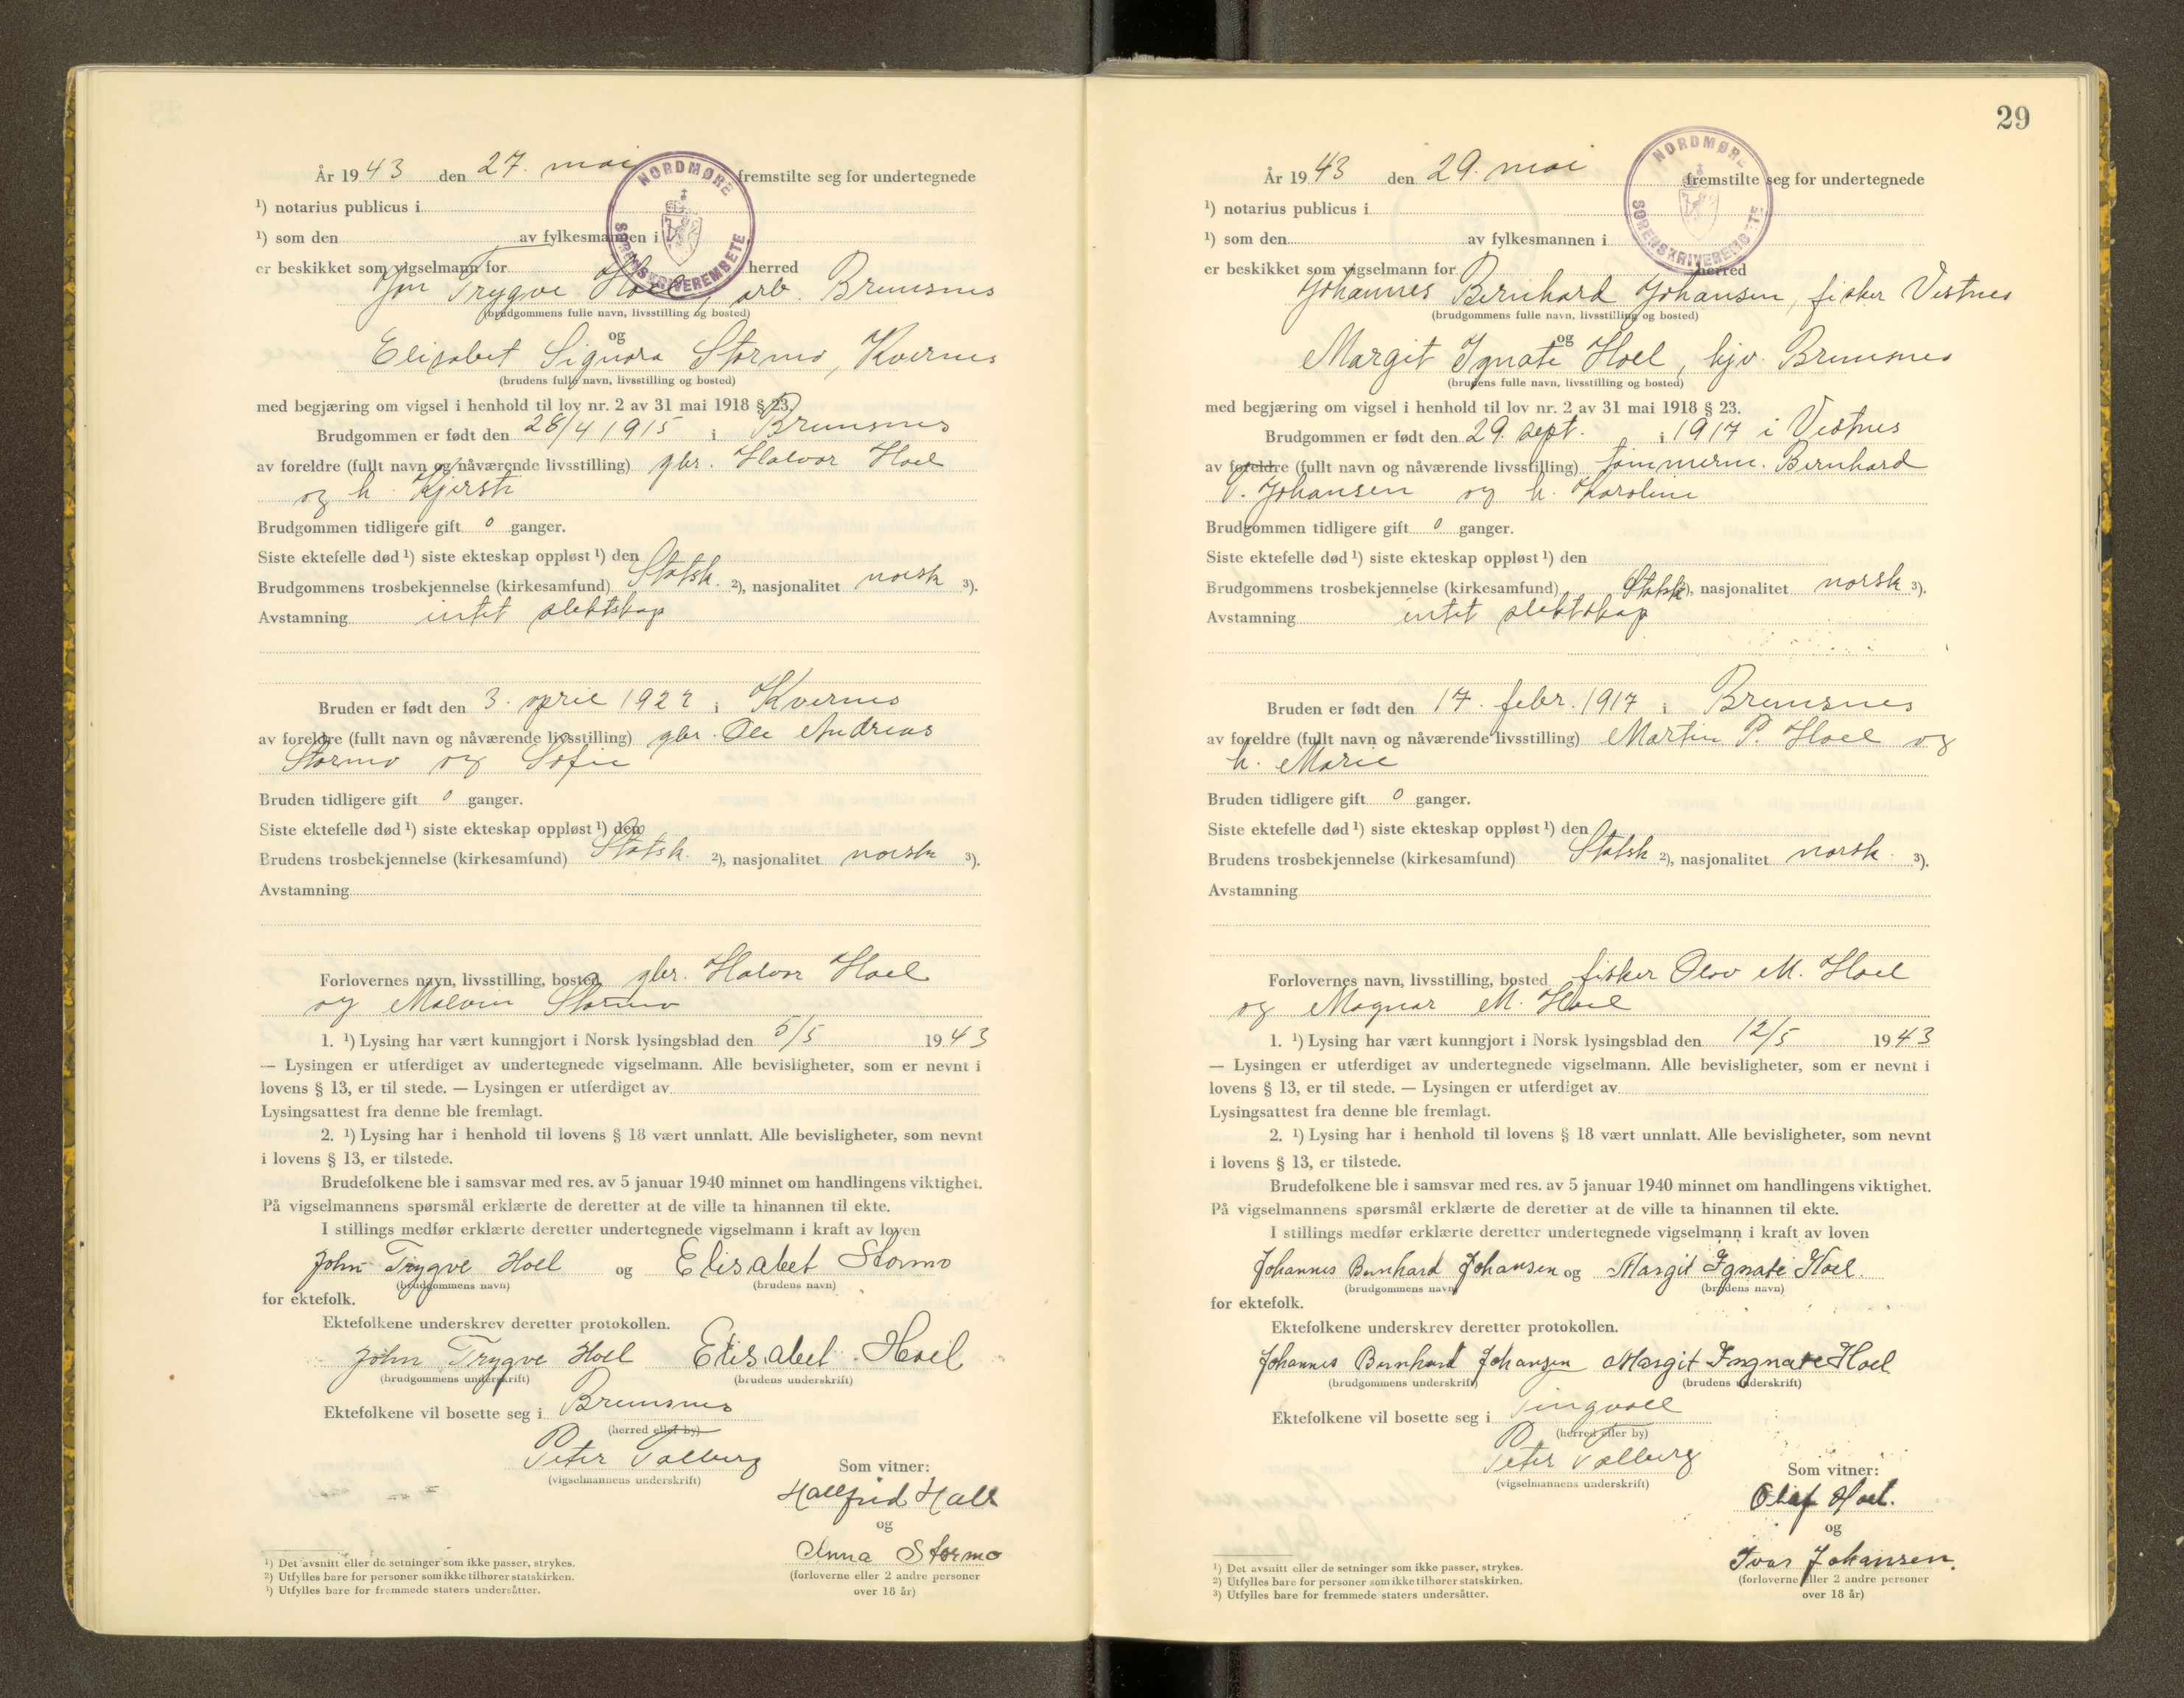 År 1943 den 27. mai fremstilte seg for undertegnede
¹) notarius publicus i
¹) som den av fylkesmannen i
er beskikket som vigselmann for herred
NORDMØRE SORENSKRIVEREMBETE
Jon Trygve Hoel, arb. Bremsnes
(brudgommens fulle navn, livsstilling og bosted)
og
Elisabet Signora Stormo, Kvernes
(brudens fulle navn, livsstilling og bosted)
med begjæring om vigsel i henhold til lov nr. 2 av 31 mai 1918 § 23.
Brudgommen er født den 28/4 1915 i Bremsnes
av foreldre (fullt navn og nåværende livsstilling) gbr. Halvor Hoel
og h. Kjersti
Brudgommen tidligere gift 0 ganger.
Siste ektefelle død ¹) siste ekteskap oppløst ¹) den
Brudgommens trosbekjennelse (kirkesamfund) Statsk. ²), nasjonalitet norsk ³).
Avstamning intet slektskap
Bruden er født den 3. april 1922 i Kvernes
av foreldre (fullt navn og nåværende livsstilling) gbr. Ole Andreas
Stormo og Sofie
Bruden tidligere gift 0 ganger.
Siste ektefelle død ¹) siste ekteskap oppløst ¹) den
Brudens trosbekjennelse (kirkesamfund) Statsk. ²), nasjonalitet norsk ³).
Avstamning
Forlovernes navn, livsstilling, bosted gbr. Halvor Hoel
og Malvin Stormo
1. ¹) Lysing har vært kunngjort i Norsk lysingsblad den 5/5 1943
— Lysingen er utferdiget av undertegnede vigselmann. Alle bevisligheter, som er nevnt i
lovens § 13, er til stede. — Lysingen er utferdiget av
Lysingsattest fra denne ble fremlagt.
2. ¹) Lysing har i henhold til lovens § 18 vært unnlatt. Alle bevisligheter, som nevnt
i lovens § 13, er tilstede.
Brudefolkene ble i samsvar med res. av 5 januar 1940 minnet om handlingens viktighet.
På vigselmannens spørsmål erklærte de deretter at de ville ta hinannen til ekte.
I stillings medfør erklærte deretter undertegnede vigselmann i kraft av loven
John Trygve Hoel og Elisabet Stormo
(brudgommens navn) (brudens navn)
for ektefolk.
Ektefolkene underskrev deretter protokollen.
John Trygve Hoel Elisabet Hoel
(brudgommens underskrift) (brudens underskrift)
Ektefolkene vil bosette seg i Bremsnes
(herred eller by)
Peter Tolberg
(vigselmannens underskrift)
Som vitner:
Hallfrid Hall
og
Anna Stormo
(forloverne eller 2 andre personer
over 18 år)
¹) Det avsnitt eller de setninger som ikke passer, strykes.
²) Utfylles bare for personer som ikke tilhører statskirken.
³) Utfylles bare for fremmede staters undersåtter.
29
År 1943 den 29. mai fremstilte seg for undertegnede
¹) notarius publicus i
¹) som den av fylkesmannen i
er beskikket som vigselmann for herred
NORDMØRE SORENSKRIVEREMBETE
Johannes Bernhard Johansen, fisker Vestnes
(brudgommens fulle navn, livsstilling og bosted)
og
Margit Ignate Hoel, hjv. Bremsnes
(brudens fulle navn, livsstilling og bosted)
med begjæring om vigsel i henhold til lov nr. 2 av 31 mai 1918 § 23.
Brudgommen er født den 29. sept. i 1917 i Vestnes
av foreldre (fullt navn og nåværende livsstilling) tømmerm. Bernhard
V. Johansen og h. Karoline
Brudgommen tidligere gift 0 ganger.
Siste ektefelle død ¹) siste ekteskap oppløst ¹) den
Brudgommens trosbekjennelse (kirkesamfund) Statsk ²), nasjonalitet norsk ³).
Avstamning intet slektskap
Bruden er født den 17. febr. 1917 i Bremsnes
av foreldre (fullt navn og nåværende livsstilling) Martin P. Hoel og
h. Marie
Bruden tidligere gift 0 ganger.
Siste ektefelle død ¹) siste ekteskap oppløst ¹) den
Brudens trosbekjennelse (kirkesamfund) Statsk ²), nasjonalitet norsk. ³).
Avstamning
Forlovernes navn, livsstilling, bosted fisker Olav M. Hoel
og Magnar M. Hoel
1. ¹) Lysing har vært kunngjort i Norsk lysingsblad den 12/5 1943
— Lysingen er utferdiget av undertegnede vigselmann. Alle bevisligheter, som er nevnt i
lovens § 13, er til stede. — Lysingen er utferdiget av
Lysingsattest fra denne ble fremlagt.
2. ¹) Lysing har i henhold til lovens § 18 vært unnlatt. Alle bevisligheter, som nevnt
i lovens § 13, er tilstede.
Brudefolkene ble i samsvar med res. av 5 januar 1940 minnet om handlingens viktighet.
På vigselmannens spørsmål erklærte de deretter at de ville ta hinannen til ekte.
I stillings medfør erklærte deretter undertegnede vigselmann i kraft av loven
Johannes Bernhard Johansen og Margit Ignate Hoel.
(brudgommens navn) (brudens navn)
for ektefolk.
Ektefolkene underskrev deretter protokollen.
Johannes Bernhard Johansen Margit Ingnate Hoel
(brudgommens underskrift) (brudens underskrift)
Ektefolkene vil bosette seg i Tingvoll
(herred eller by)
Peter Tolberg
(vigselmannens underskrift)
Som vitner:
Olaf Hoel.
og
Ivar Johansen.
(forloverne eller 2 andre personer
over 18 år)
¹) Det avsnitt eller de setninger som ikke passer, strykes.
²) Utfylles bare for personer som ikke tilhører statskirken.
³) Utfylles bare for fremmede staters undersåtter.